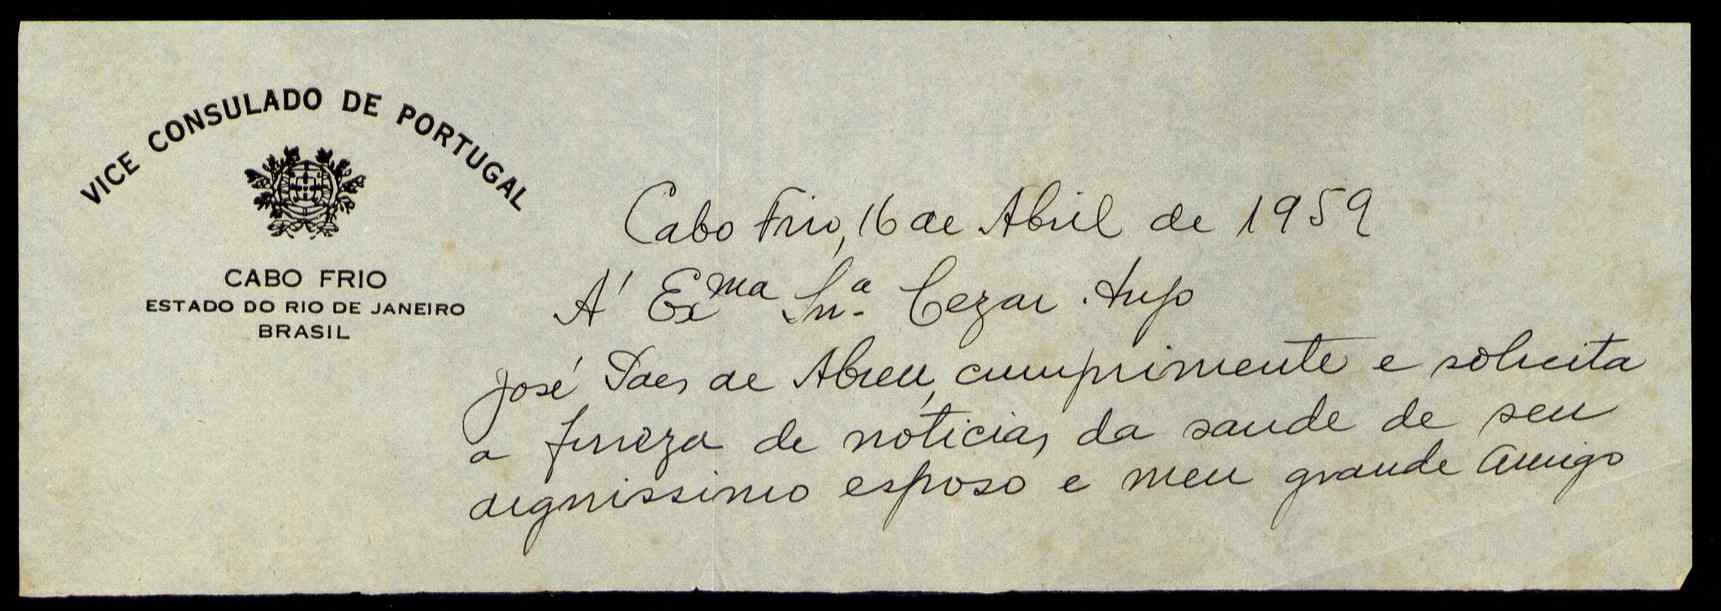 VICE CONSULADO DE PORTUGAL
CABO FRIO
ESTADO DO RIO DE JANEIRO
BRASIL
Cabo Frio, 16 de Abril de 1959
A' Exma Snra. Cezar
José Paes de Abreu, cumprimente e solicita
a fineza de noticias da saude de seu
dignissimo esposo e meu grande Amigo